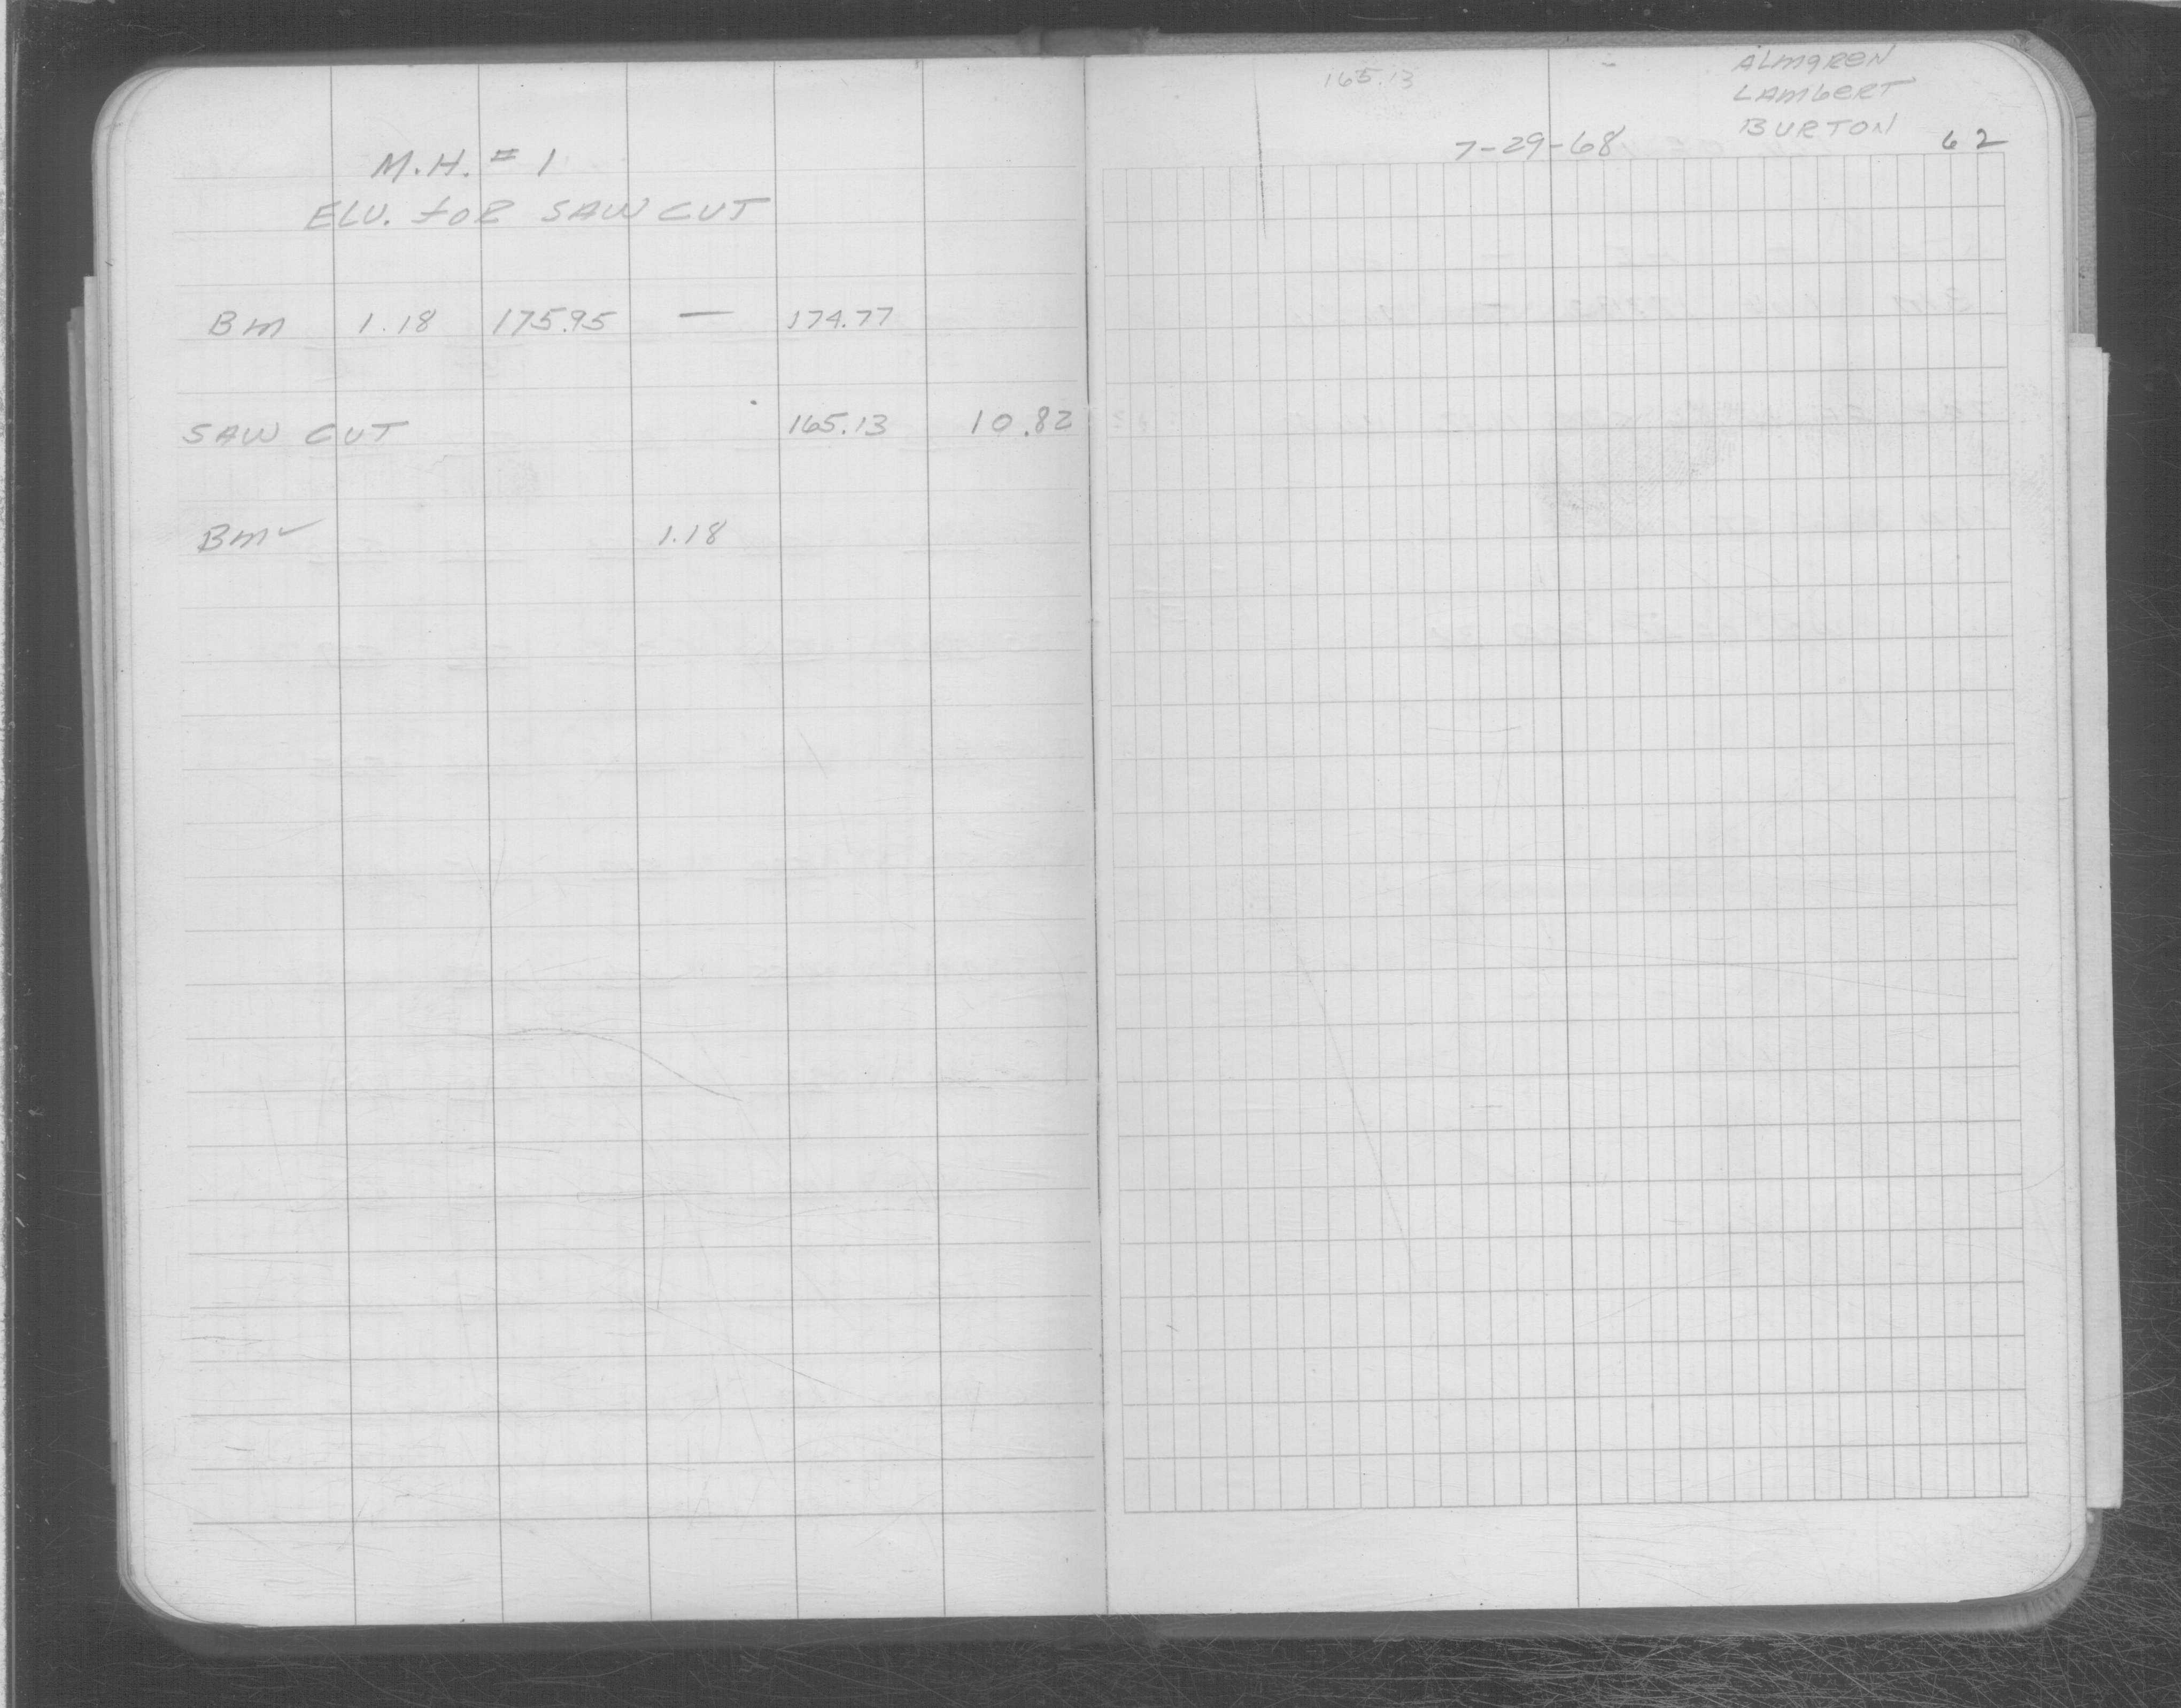 M.H. # 1
ELV. FOR SAW CUT
BM 1.18 175.95 — 174.77
SAW CUT 165.13 10.82
BM ✓ 1.18
165.13
ALMGREN
LAMBERT
BURTON
7-29-68
62